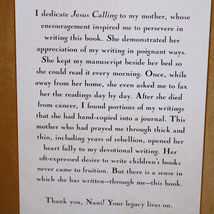 I dedicate Jesus Calling to my mother, whose
encouragement inspired me to persevere in
writing this book. She demonstrated her
appreciation of my writing in poignant ways.
She kept my manuscript beside her bed so
she could read it every morning. Once, while
away from home, she even asked me to fax
her the readings day by day. After she died
from cancer, I found portions of my writings
that she had hand-copied into a journal. This
mother who had prayed me through thick and
thin, including years of rebellion, opened her
heart fully to my devotional writing. Her
oft-expressed desire to write children's books
never came to fruition. But there is a sense in
which she has written—through me—this book.
Thank you, Nani! Your legacy lives on.